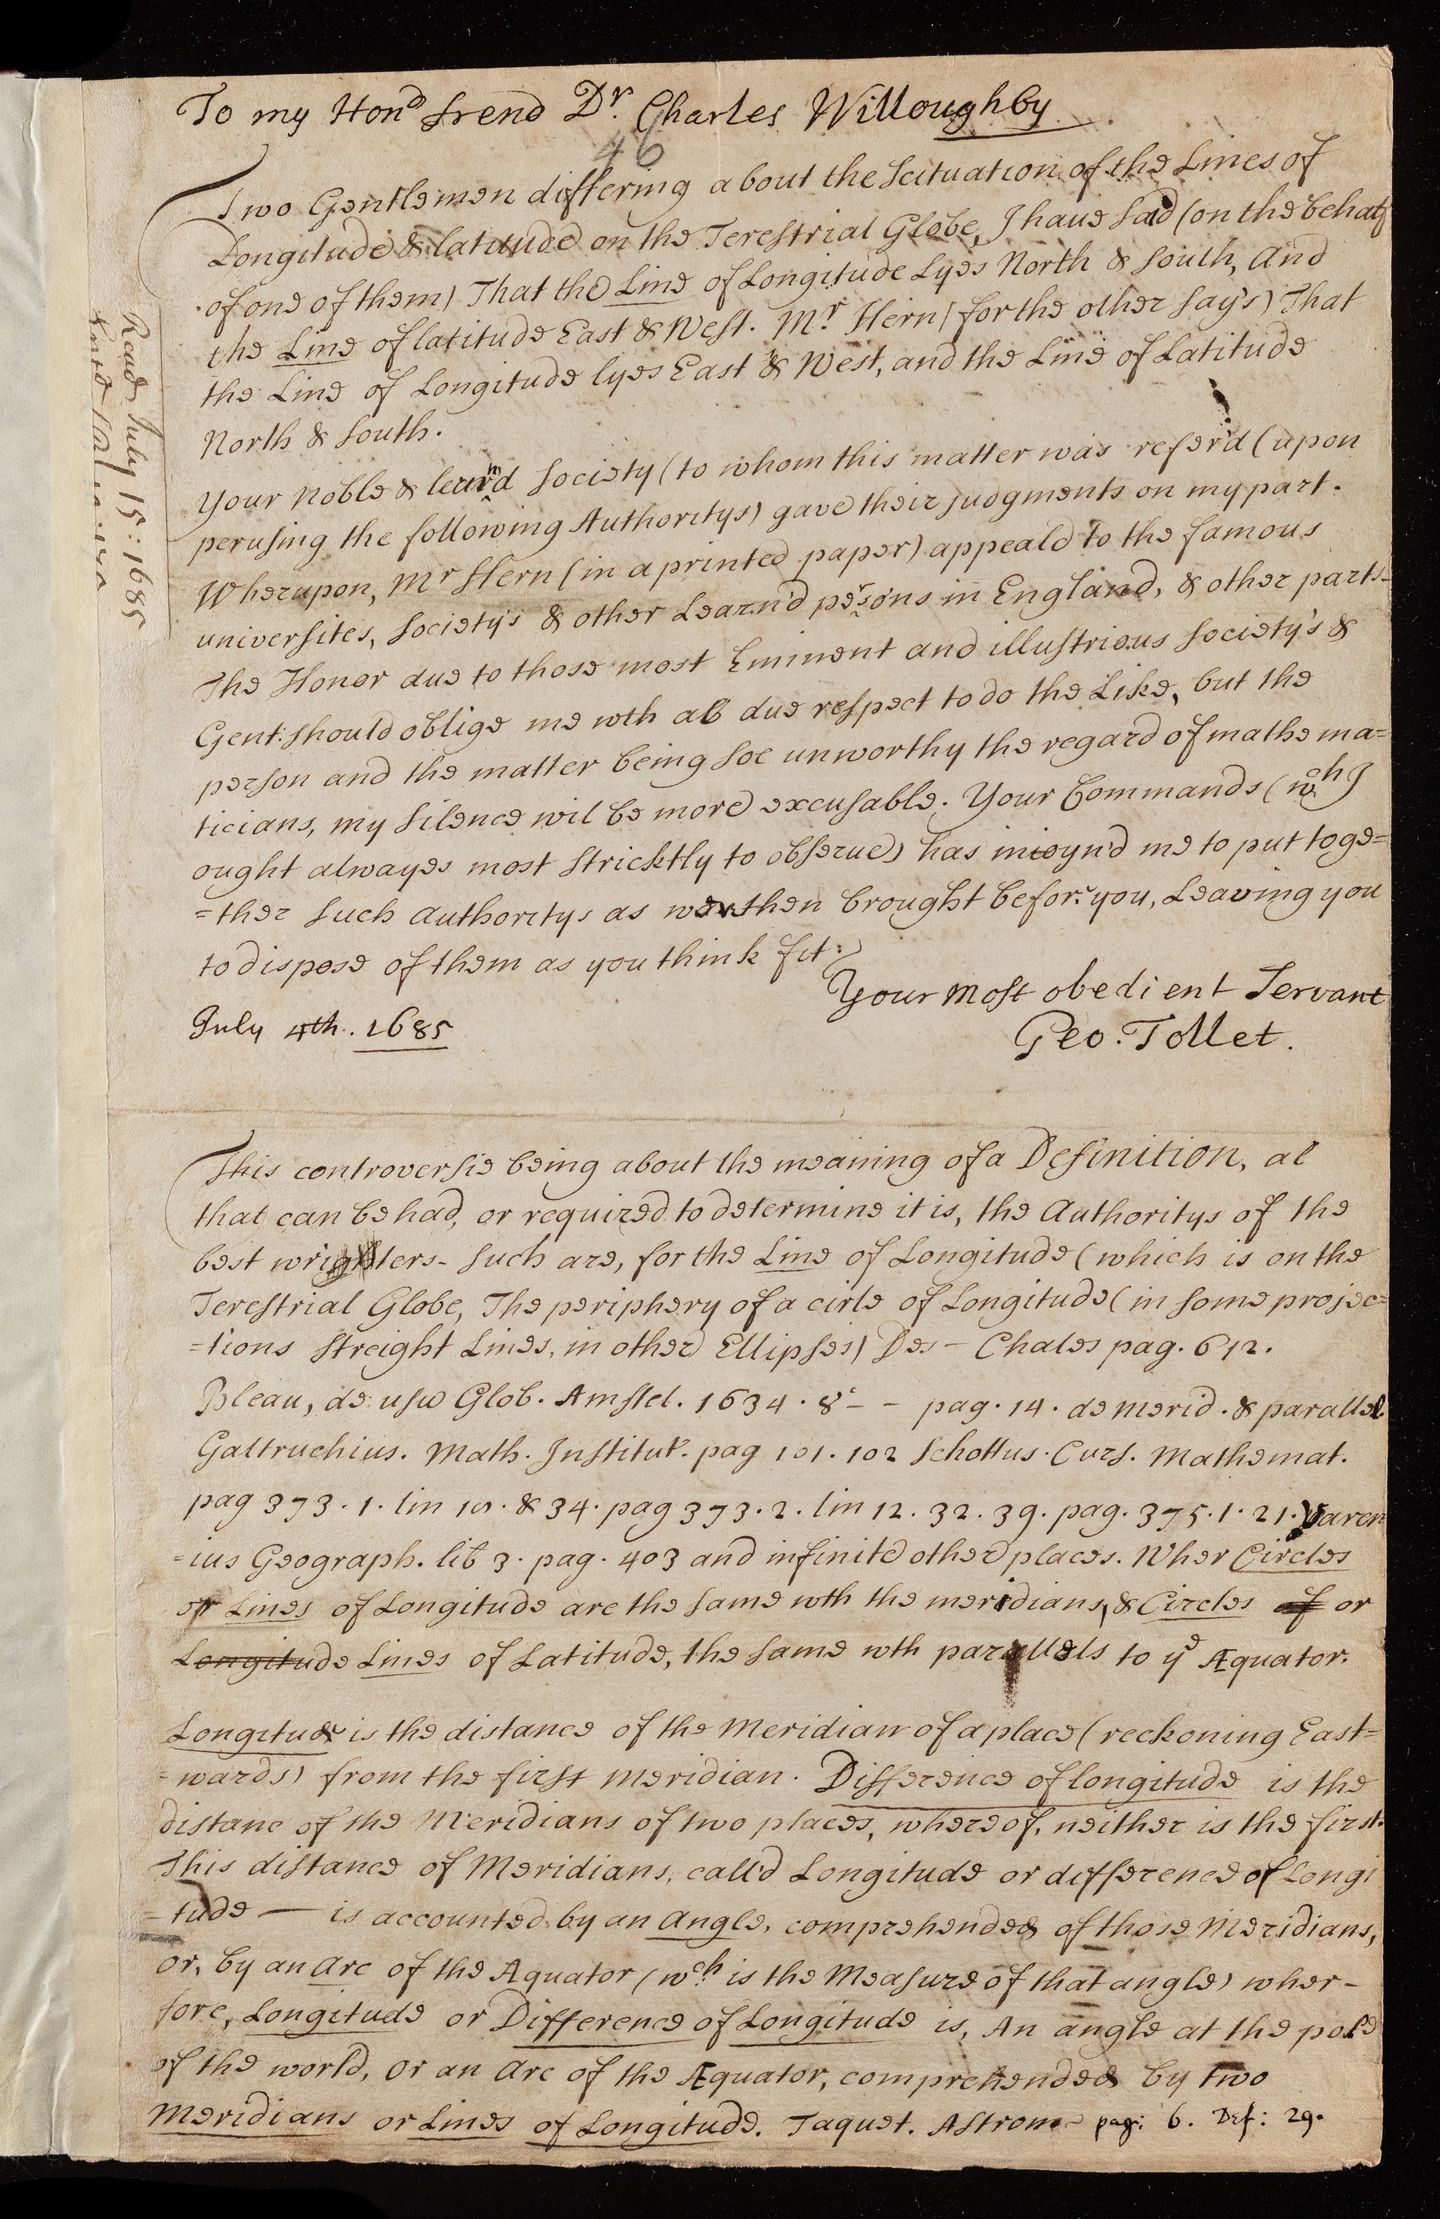 To my Hon^d frend D^r. Charles Willoughby
46
Two Gentlemen differing about the Scituation of the Lines of
Longitude & latitude on the Terestrial Globe, I have said (on the behalf
of one of them) That the Line of Longitude Lyes North & South, And
the Line of latitude East & West. M^r Hern (for the other say's) That
the Line of Longitude lyes East & West, and the Line of Latitude
North & South.
Your Noble & learnd Society (to whom this matter was refer'd (upon
perusing the following Authoritys) gave their judgments on my part.
Wherupon, M^r Hern (in a printed paper) appeald to the famous
universites, Society's & other Learn'd persons in England, & other parts-
The Honor due to those most Eminent and illustrious Society's &
Gent: should oblige me wth all due respect to do the Like, but the
person and the matter being soe unworthy the regard of mathema=
ticians, my silence wil be more excusable. Your Commands (w^ch I
ought alwayes most stricktly to observe) has inioyn'd me to put toge=
=ther such Authoritys as wer then brought before you, Leaving you
to dispose of them as you think fit:
Your most obedient Servant
July 4th. 1685
Geo. Tollet.
Read July 15: 1685
This controversie being about the meaning of a Definition, al
that can be had, or required to determine it is, the Authoritys of the
best wrighters- Such are, for the Line of Longitude (which is on the
Terestrial Globe, The periphery of a cirle of Longitude (in some projec=
=tions streight Lines, in other Ellipses) Des- Chales pag. 612.
Bleau, de usu Glob. Amstel. 1634. 8^o - - pag. 14. de merid. & parallel
Galtruchius. Math. Institut. pag 101. 102 Schottus. Curs. Mathemat.
pag 373. 1. lin 10. & 34. pag 373. 2. lin 12. 32. 39. pag. 375. 1. 21. Varen
=ius Geograph. lib 3. pag. 403 and infinite other places. Wher Circles
or Lines of Longitude are the same wth the meridians, & Circles of or
Longitude Lines of Latitude, the same wth parallels to y^e Æquator.
Longitude is the distance of the Meridian of a place (reckoning East=
=wards) from the first meridian. Difference of longitude is the
distanc of the Meridians of two places, whereof, neither is the first.
This distance of Meridians, call'd Longitude or difference of Longi
=tude — is accounted by an Angle, comprehended of those Meridians,
or, by an Arc of the Æquator (w^ch is the Measure of that angle) wher-
fore, Longitude or Difference of Longitude is, An angle at the pole
of the world, Or an Arc of the Æquator, comprehended by two
Meridians or Lines of Longitude. Taquet. Astrom- pag: 6. Def: 29.